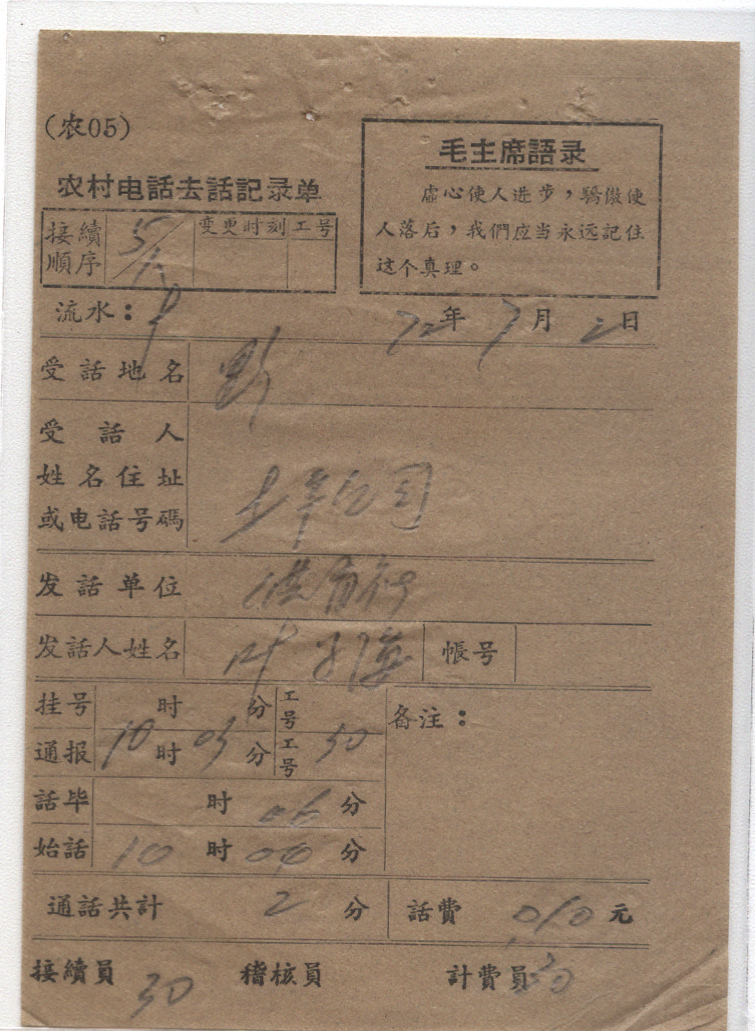 (农05)
农村电话去话記录单
毛主席語录
虛心使人进步，驕傲使
人落后，我們应当永远記住
这个真理。
接續
順序
变更时刻 工号
流水：
72年7月2日
受話地名
受話人
姓名住址
或电話号碼
公司
发話单位
发話人姓名 叶 帳号
挂号 时 分 工号
通报 10时03分 工号 30
备注：
話毕 时06分
始話 10时04分
通話共計 2分 話費 0.10元
接續員 30 稽核員 計費員 30